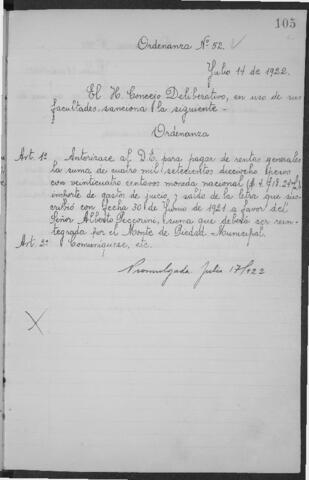 105
Ordenanza Nº 52.
Julio 14 de 1922.
El H. Concejo Deliberativo, en uso de sus
facultades sanciona la siguiente -
Ordenanza
Art. 1º Autorizace al D.E. para pagar de rentas generales
la suma de cuatro mil setecientos dieciocho pesos
con veinticuatro centavos moneda nacional ($ 4.718.24
importe de gastos de juicio, y saldo de la letra que sus-
cribió con fecha 30 de Junio de 1921 a favor del
Señor Alberto Pecorini, suma que deberá ser rein-
tegrada por el Monte de Piedad Municipal.
Art. 2º Comuníquese, etc.
Promulgada Julio 17/922
X